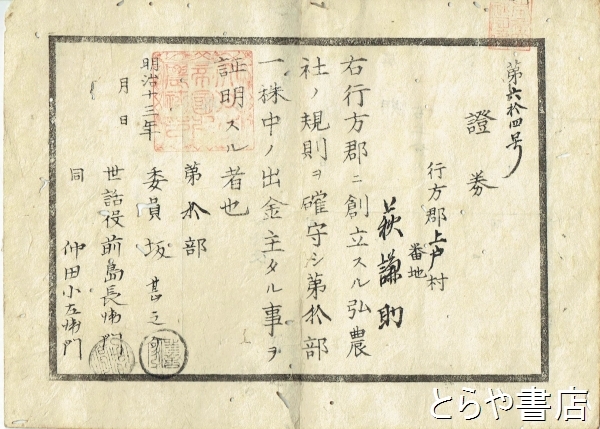 第六拾四号
證券
行方郡上戸村
番地
萩謙助
右行方郡ニ創立スル弘農
社ノ規則ヲ確守シ第拾部
一株中ノ出金主タル事ヲ
証明スル者也
明治廿三年
月 日
第拾部
委員坂甚之
世話役前島長衛門
同 仲田小左衛門
とらや書店